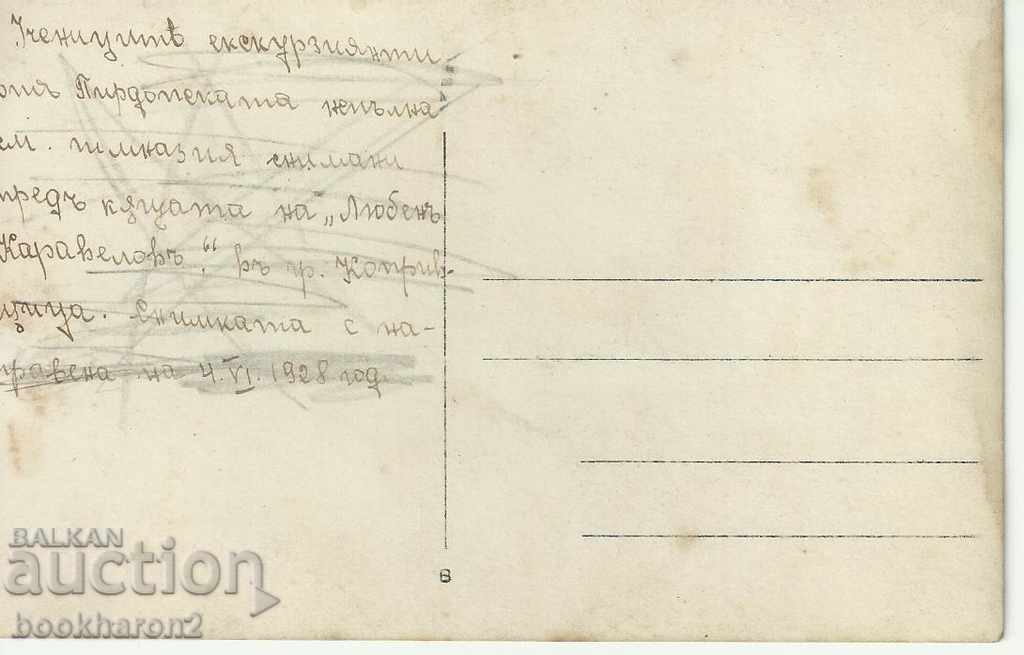 Ученицитѣ екскурзиянти
отъ Пирдопската непълна
см. гимназия снимани
предъ кѫщата на „Любенъ
Каравеловъ“ въ гр. Копривщица.
Снимката е на-
правена на 4.VI.1928 год.
В
BALKAN
auction
bookharon2